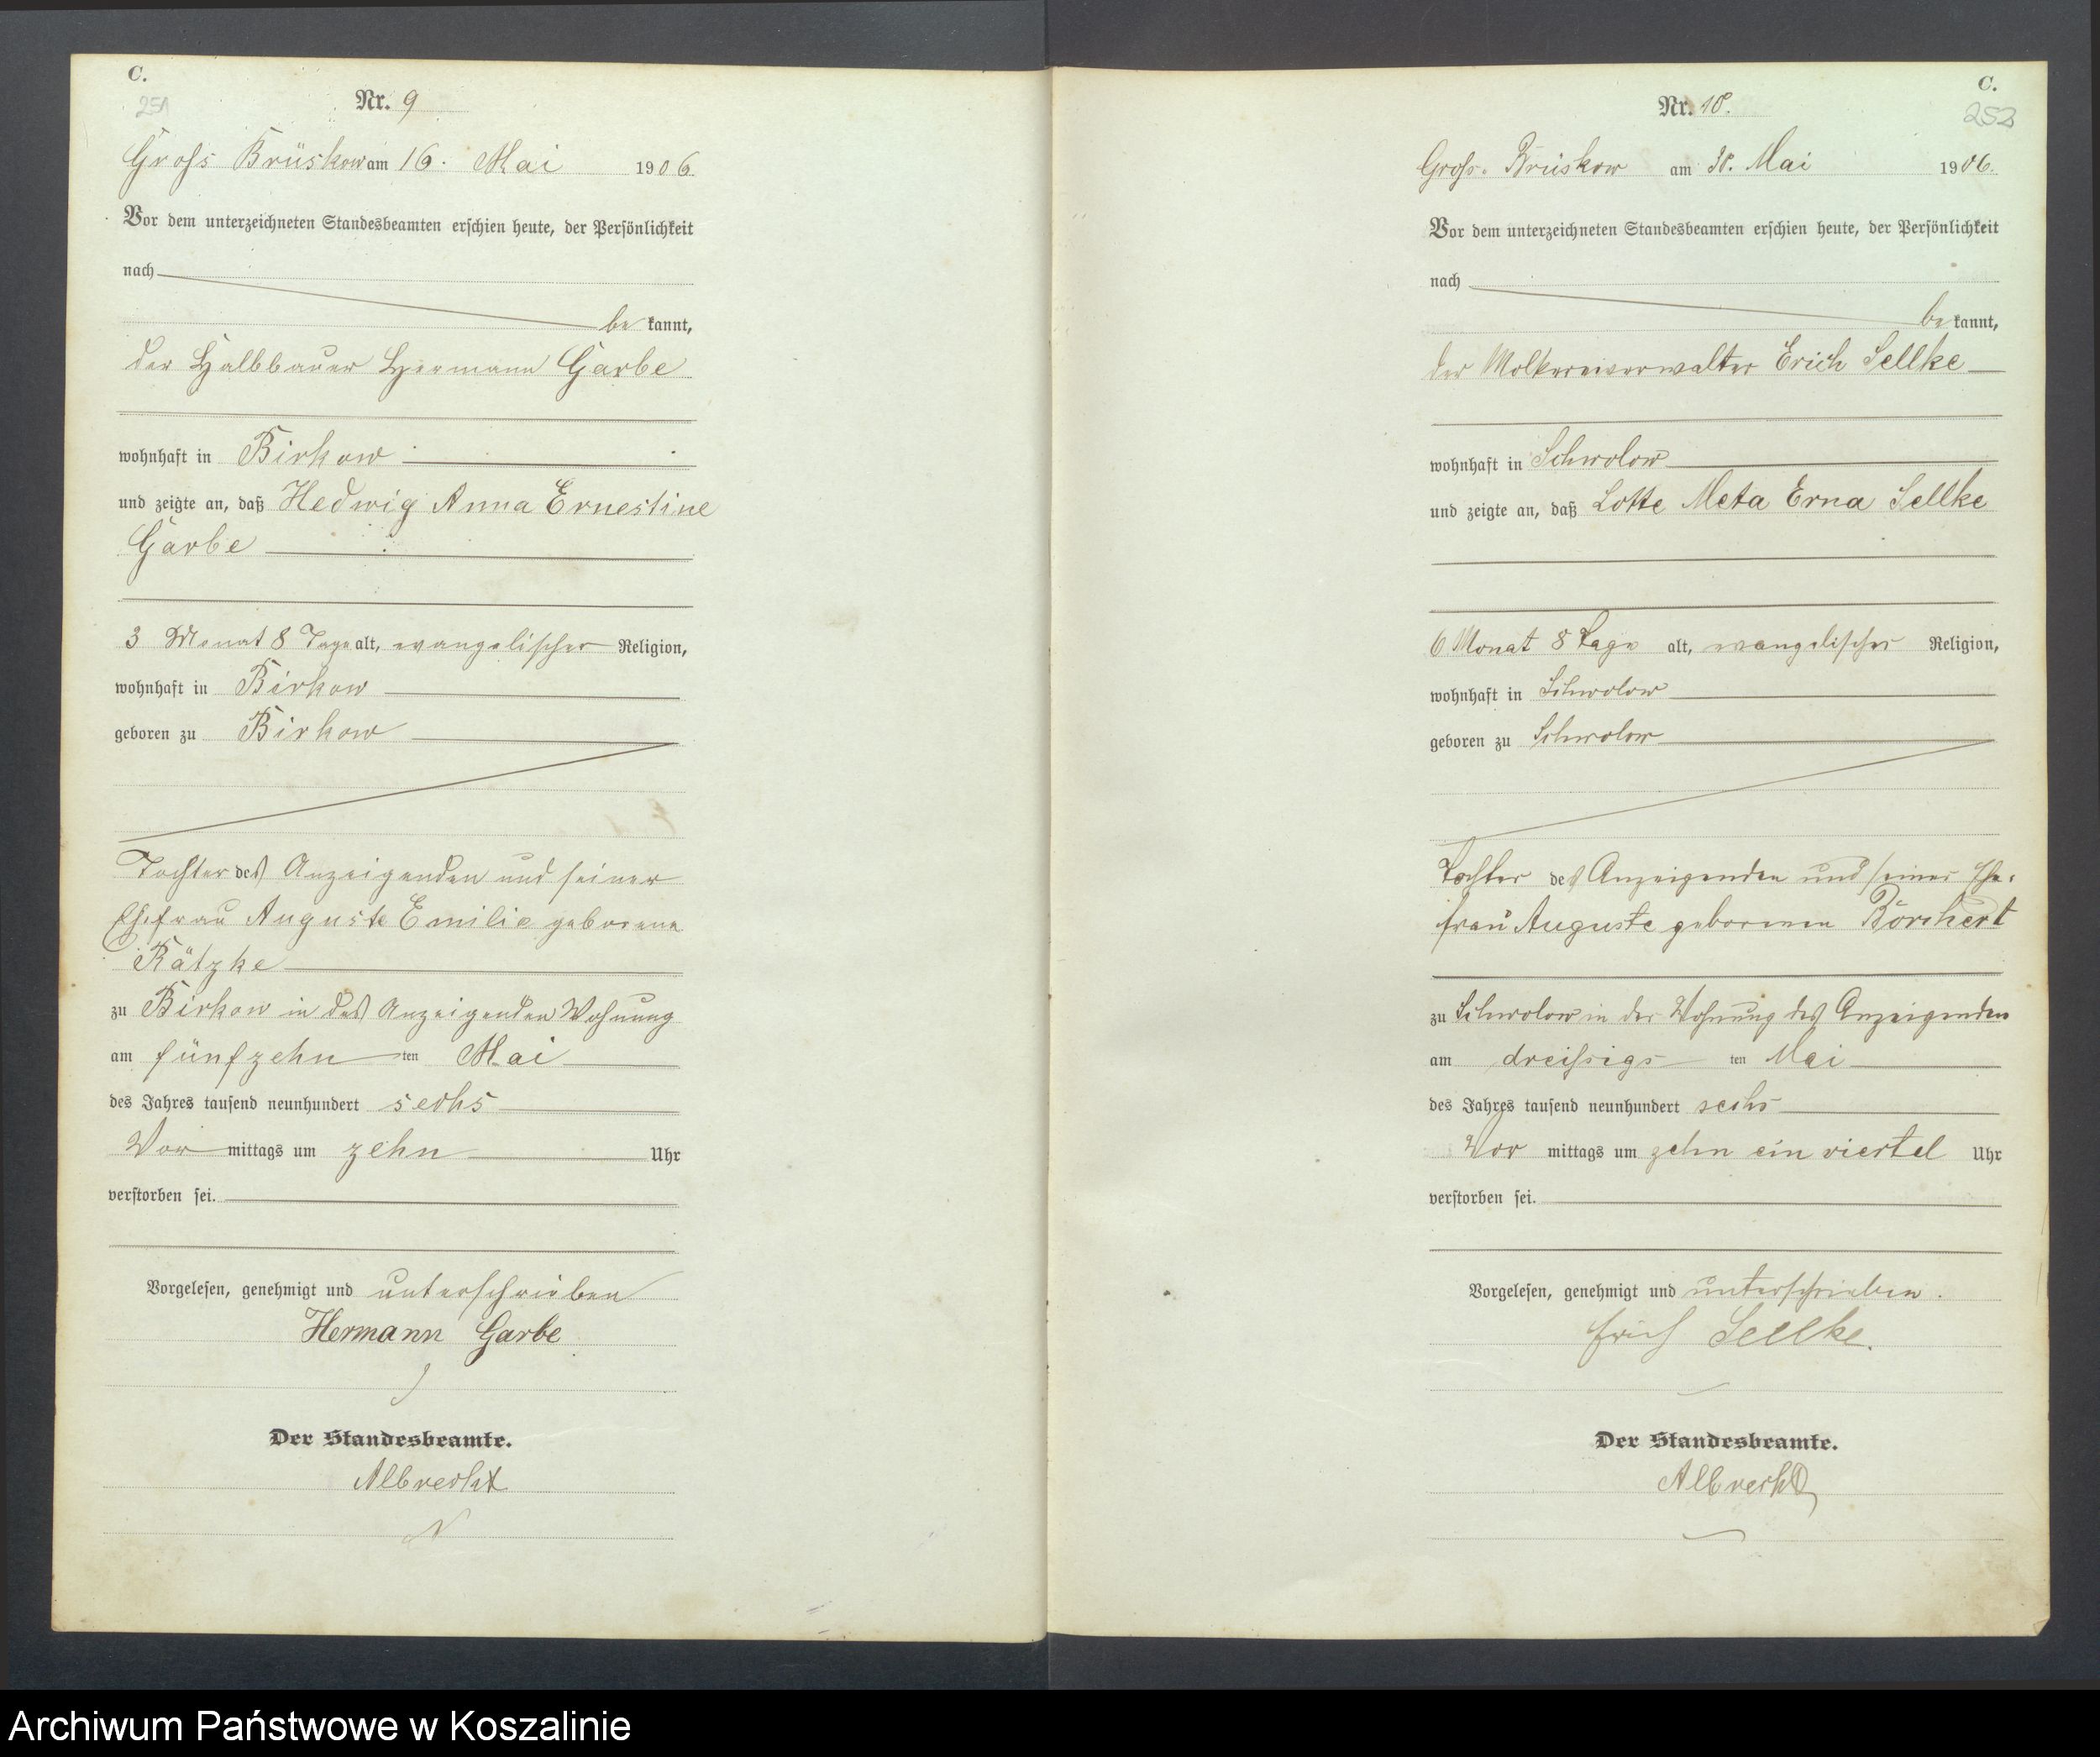 C.
251
Nr. 9
Groß Brüskow am 16. Mai 1906
Vor dem unterzeichneten Standesbeamten erschien heute, der Persönlichkeit
nach
be kannt,
der Halbbauer Hermann Garbe
wohnhaft in Birkow
und zeigte an, daß Hedwig Anna Ernestine
Garbe
3 Monat 8 Tage alt, evangelischer Religion,
wohnhaft in Birkow
geboren zu Birkow
Tochter des Anzeigenden und seiner
Ehefrau Auguste Emilie geborene
Rätzke
zu Birkow in des Anzeigenden Wohnung
am fünfzehn ten Mai
des Jahres tausend neunhundert sechs
Vor mittags um zehn Uhr
verstorben sei.
Vorgelesen, genehmigt und unterschrieben
Hermann Garbe
Der Standesbeamte.
Albrecht
C.
252
Nr. 10.
Groß. Brüskow am 30. Mai 1906.
Vor dem unterzeichneten Standesbeamten erschien heute, der Persönlichkeit
nach
be kannt,
der Molkereiverwalter Erich Sellke
wohnhaft in Schwolow
und zeigte an, daß Lotte Meta Erna Sellke
6 Monat 8 Tage alt, evangelischer Religion,
wohnhaft in Schwolow
geboren zu Schwolow
Tochter des Anzeigenden und seiner Ehe-
frau Auguste geborenen Borchert
zu Schwolow in der Wohnung des Anzeigenden
am dreißigs ten Mai
des Jahres tausend neunhundert sechs
Vor mittags um zehn ein viertel Uhr
verstorben sei.
Vorgelesen, genehmigt und unterschrieben.
Erich Sellke.
Der Standesbeamte.
Albrecht
Archiwum Państwowe w Koszalinie